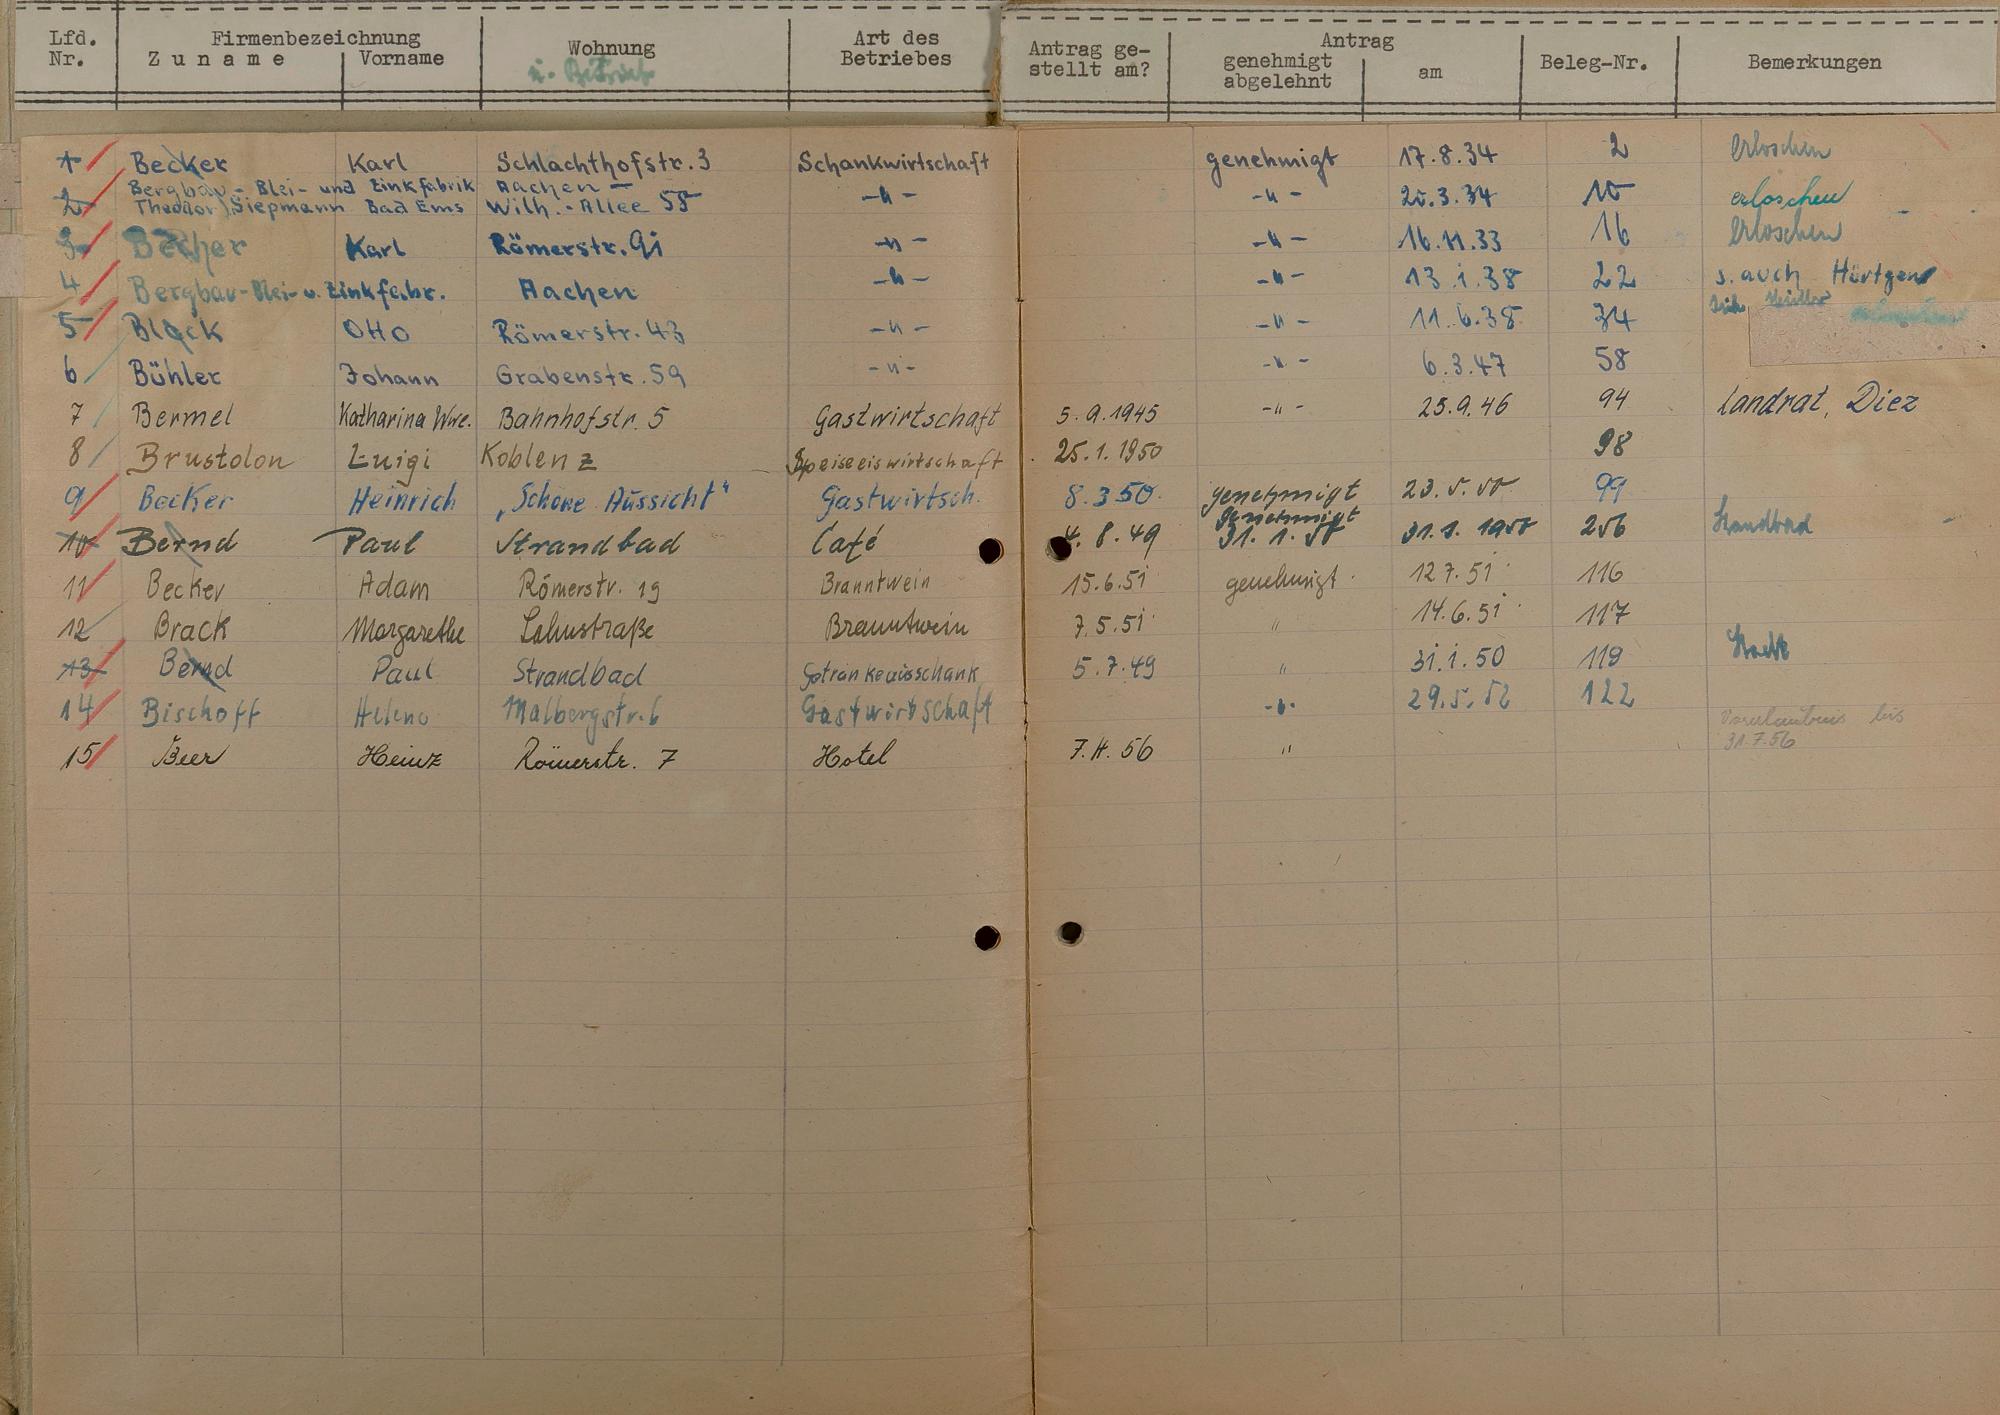 Lfd. Nr. Firmenbezeichnung Zuname Vorname Wohnung u. Betrieb Art des Betriebes Antrag ge-stellt am? Antrag genehmigt abgelehnt am Beleg-Nr. Bemerkungen
1 Becker Karl Schlachthofstr. 3 Schankwirtschaft genehmigt 17.8.34 2 erloschen
2 Bergbau- Blei- und Zinkfabrik Aachen -
Theodor Siepmann Bad Ems Wilh.-Allee 58 -"- -"- 20.3.34 10 erloschen
3 Becher Karl Römerstr. 91 -"- -"- 16.11.33 16 erloschen
4 Bergbau-Blei- u. Zinkfabr. Aachen -"- -"- 13.1.38 22 s. auch Hürtgen
5 Block Otto Römerstr. 43 -"- -"- 11.6.38 34
6 Bühler Johann Grabenstr. 59 -"- -"- 6.3.47 58
7 Bermel Katharina Wwe. Bahnhofstr. 5 Gastwirtschaft 5.9.1945 -"- 25.9.46 94 Landrat, Diez
8 Brustolon Luigi Koblenz Speiseeiswirtschaft 25.1.1950 98
9 Becker Heinrich „Schöne Aussicht" Gastwirtsch. 8.3.50. genehmigt 23.5.50 99
10 Bernd Paul Strandbad Café 4.8.49 genehmigt 31.1.50 31.1.1950 256 Strandbad
11 Becker Adam Römerstr. 19 Branntwein 15.6.51 genehmigt. 12.7.51 116
12 Brack Margarethe Lahnstraße Branntwein 7.5.51 " 14.6.51 117
13 Bernd Paul Strandbad Getränkeausschank 5.7.49 " 31.1.50 119 Stadt
14 Bischoff Helene Malbergstr. 6 Gastwirtschaft -"- 29.5.52 122
15 Beer Heinz Römerstr. 7 Hotel 7.4.56 " Vorerlaubnis bis
31.7.56